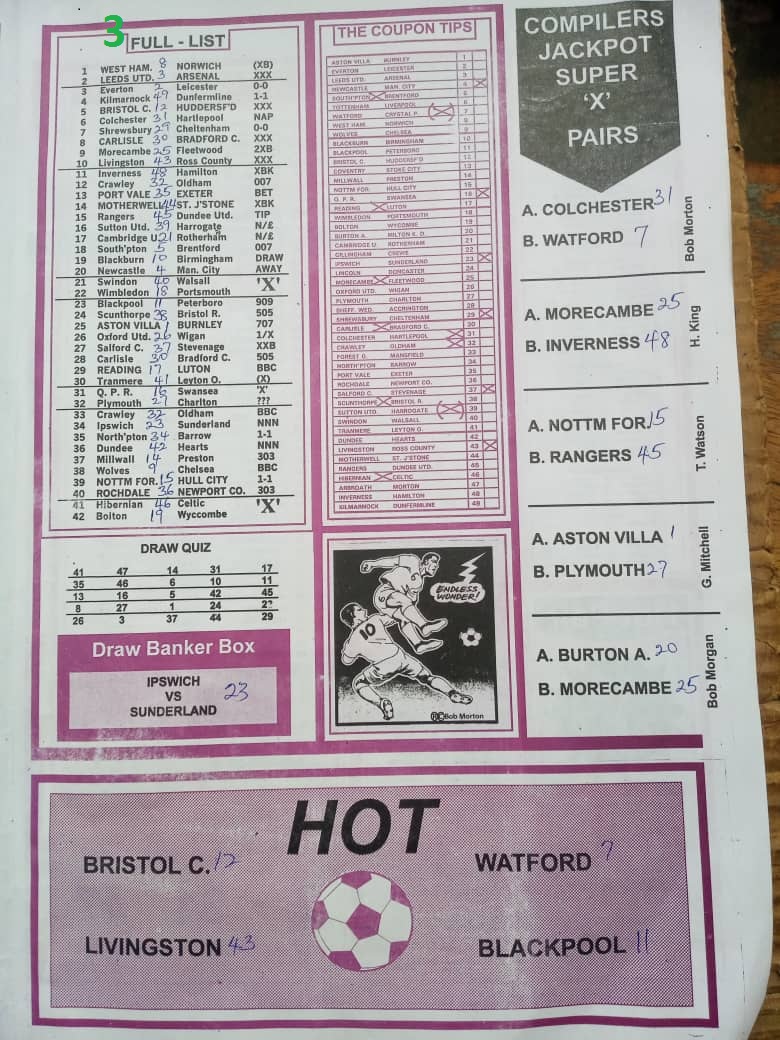 3
FULL - LIST
1 WEST HAM. 8 NORWICH (XB)
2 LEEDS UTD. 3 ARSENAL XXX
3 Everton 2 Leicester 0-0
4 Kilmarnock 49 Dunfermline 1-1
5 BRISTOL C. 12 HUDDERSF'D XXX
6 Colchester 31 Hartlepool NAP
7 Shrewsbury 29 Cheltenham 0-0
8 CARLISLE 30 BRADFORD C. XXX
9 Morecambe 25 Fleetwood 2XB
10 Livingston 43 Ross County XXX
11 Inverness 48 Hamilton XBK
12 Crawley 32 Oldham 007
13 PORT VALE 35 EXETER BET
14 MOTHERWELL 44 ST. J'STONE XBK
15 Rangers 45 Dundee Utd. TIP
16 Sutton Utd. 39 Harrogate N/£
17 Cambridge U 21 Rotherham N/£
18 South'pton 5 Brentford 007
19 Blackburn 10 Birmingham DRAW
20 Newcastle 4 Man. City AWAY
21 Swindon 40 Walsall 'X'
22 Wimbledon 18 Portsmouth
23 Blackpool 11 Peterboro 909
24 Scunthorpe 38 Bristol R. 505
25 ASTON VILLA 1 BURNLEY 707
26 Oxford Utd. 26 Wigan 1/X
27 Salford C. 37 Stevenage XXB
28 Carlisle 30 Bradford C. 505
29 READING 17 LUTON BBC
30 Tranmere 41 Leyton O. (X)
31 Q. P. R. 16 Swansea 'X'
32 Plymouth 27 Charlton ???
33 Crawley 32 Oldham BBC
34 Ipswich 23 Sunderland NNN
35 North'pton 34 Barrow 1-1
36 Dundee 42 Hearts NNN
37 Millwall 14 Preston 303
38 Wolves 9 Chelsea BBC
39 NOTTM FOR. 15 HULL CITY 1-1
40 ROCHDALE 36 NEWPORT CO. 303
41 Hibernian 46 Celtic 'X'
42 Bolton 19 Wyccombe
DRAW QUIZ
41 47 14 31 17
35 46 6 10 11
13 16 5 42 45
8 27 1 24 2?
26 3 37 44 29
Draw Banker Box
IPSWICH
VS 23
SUNDERLAND
THE COUPON TIPS
ASTON VILLA BURNLEY 1
EVERTON LEICESTER 2
LEEDS UTD. ARSENAL 3
NEWCASTLE MAN. CITY 4 X
SOUTH'PTON X BRENTFORD 5
TOTTENHAM LIVERPOOL 6
WATFORD CRYSTAL P. (X) 7
WEST HAM NORWICH 8
WOLVES CHELSEA 9
BLACKBURN BIRMINGHAM 10
BLACKPOOL PETERBORO 11
BRISTOL C. HUDDERSF'D 12
COVENTRY STOKE CITY 13
MILLWALL PRESTON 14
NOTTM FOR. HULL CITY 15
Q. P. R. SWANSEA 16 X
READING X LUTON 17
WIMBLEDON PORTSMOUTH 18
BOLTON WYCOMBE 19
BURTON A. MILTON K. D. 20
CAMBRIDGE U. ROTHERHAM 21
GILLINGHAM CREWE 22
IPSWICH SUNDERLAND 23 X
LINCOLN DONCASTER 24
MORECAMBE X FLEETWOOD 25
OXFORD UTD. WIGAN 26
PLYMOUTH CHARLTON 27
SHEFF. WED. ACCRINGTON 28
SHREWSBURY CHELTENHAM 29 X
CARLISLE X BRADFORD C. 30
COLCHESTER HARTLEPOOL X 31
CRAWLEY OLDHAM X 32
FOREST G. MANSFIELD 33
NORTH'PTON BARROW 34
PORT VALE EXETER 35
ROCHDALE NEWPORT CO. 36
SALFORD C. STEVENAGE 37 X
SCUNTHORPE X BRISTOL R. 38
SUTTON UTD. HARROGATE (X) 39
SWINDON WALSALL 40
TRANMERE LEYTON O. 41
DUNDEE HEARTS 42
LIVINGSTON ROSS COUNTY 43 X
MOTHERWELL ST. J'STONE 44
RANGERS DUNDEE UTD. 45
HIBERNIAN X CELTIC 46
ARBROATH MORTON 47
INVERNESS HAMILTON 48
KILMARNOCK DUNFERMLINE 49
6
10
ENDLESS
WONDER!
Bob Morton
COMPILERS
JACKPOT
SUPER
'X'
PAIRS
A. COLCHESTER 31
B. WATFORD 7
Bob Morton
A. MORECAMBE 25
B. INVERNESS 48
H. King
A. NOTTM FOR. 15
B. RANGERS 45
T. Watson
A. ASTON VILLA 1
B. PLYMOUTH 27
G. Mitchell
A. BURTON A. 20
B. MORECAMBE 25
Bob Morgan
HOT
BRISTOL C. 12 WATFORD 7
LIVINGSTON 43 BLACKPOOL 11